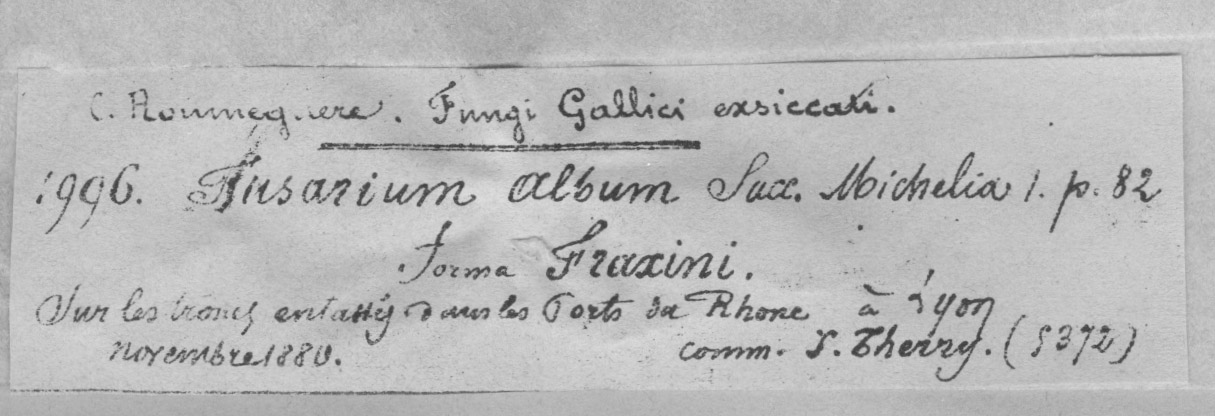 C. Roumeguere. Fungi Gallici exsiccati.
1996. Fusarium album Sacc. Michelia 1. p. 82
forma Fraxini.
Sur les troncs entassés dans les Ports du Rhone à Lyon
novembre 1880. comm. J. Therry. (5372)